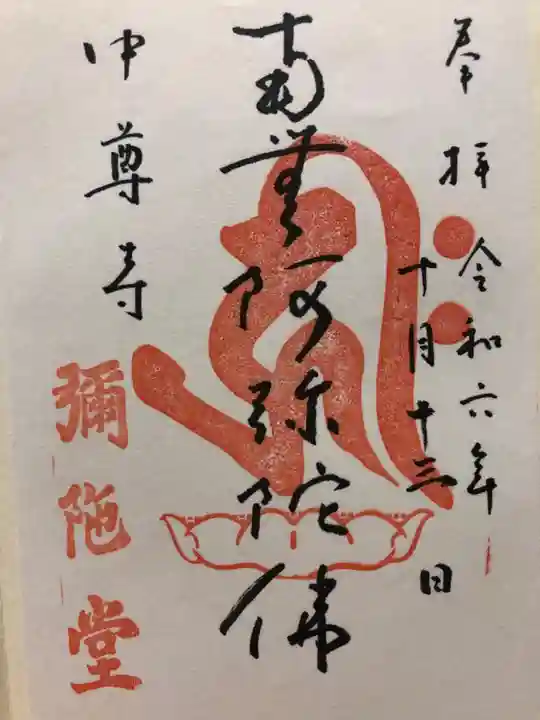 奉拝
令和六年
十月十三日
南無阿弥陀佛
中尊寺
彌陁堂